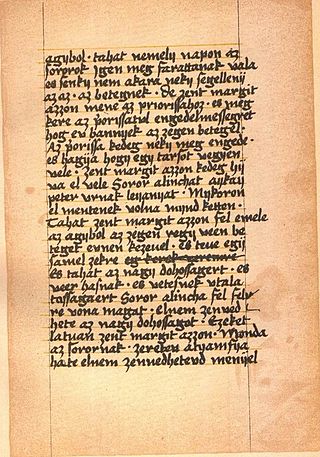 agybol · tahat nemely napon az
sororok igen meg farattanak vala
es senky nem akara neky segellenij
az az · az betegnek · de zent margit
azzon mene az priorissahoz · es meg
kere az priorissatul engedelmesseget
hog ev banniek az zegen beteggel ·
Az priorissa kedeg neky meg engede ·
es hagija hogy egy tarsot vegyen
vele · zent margit azzon kedeg hij
va el vele Soror alinchat aijkaij
peter vrnak leijanijat · Mijkoron
el mentenek volna mynd ketten ·
Tahat zent margit azzon fel emele
az agybol az zegen regij veen be
teget evnen kezeuel · es teue egij
samel zekre
es tahat az nagij dohossagert · es
veer hasnak · es vetesnek vtala
tossagaert Soror alincha fel fely
re vona magat · elnem zenved
hete az nagij dohossagot · Ezeket
latuan zent margit azzon · Monda
az sorornak · zeretev atyamfya
ha te elnem zenvedheted menijel